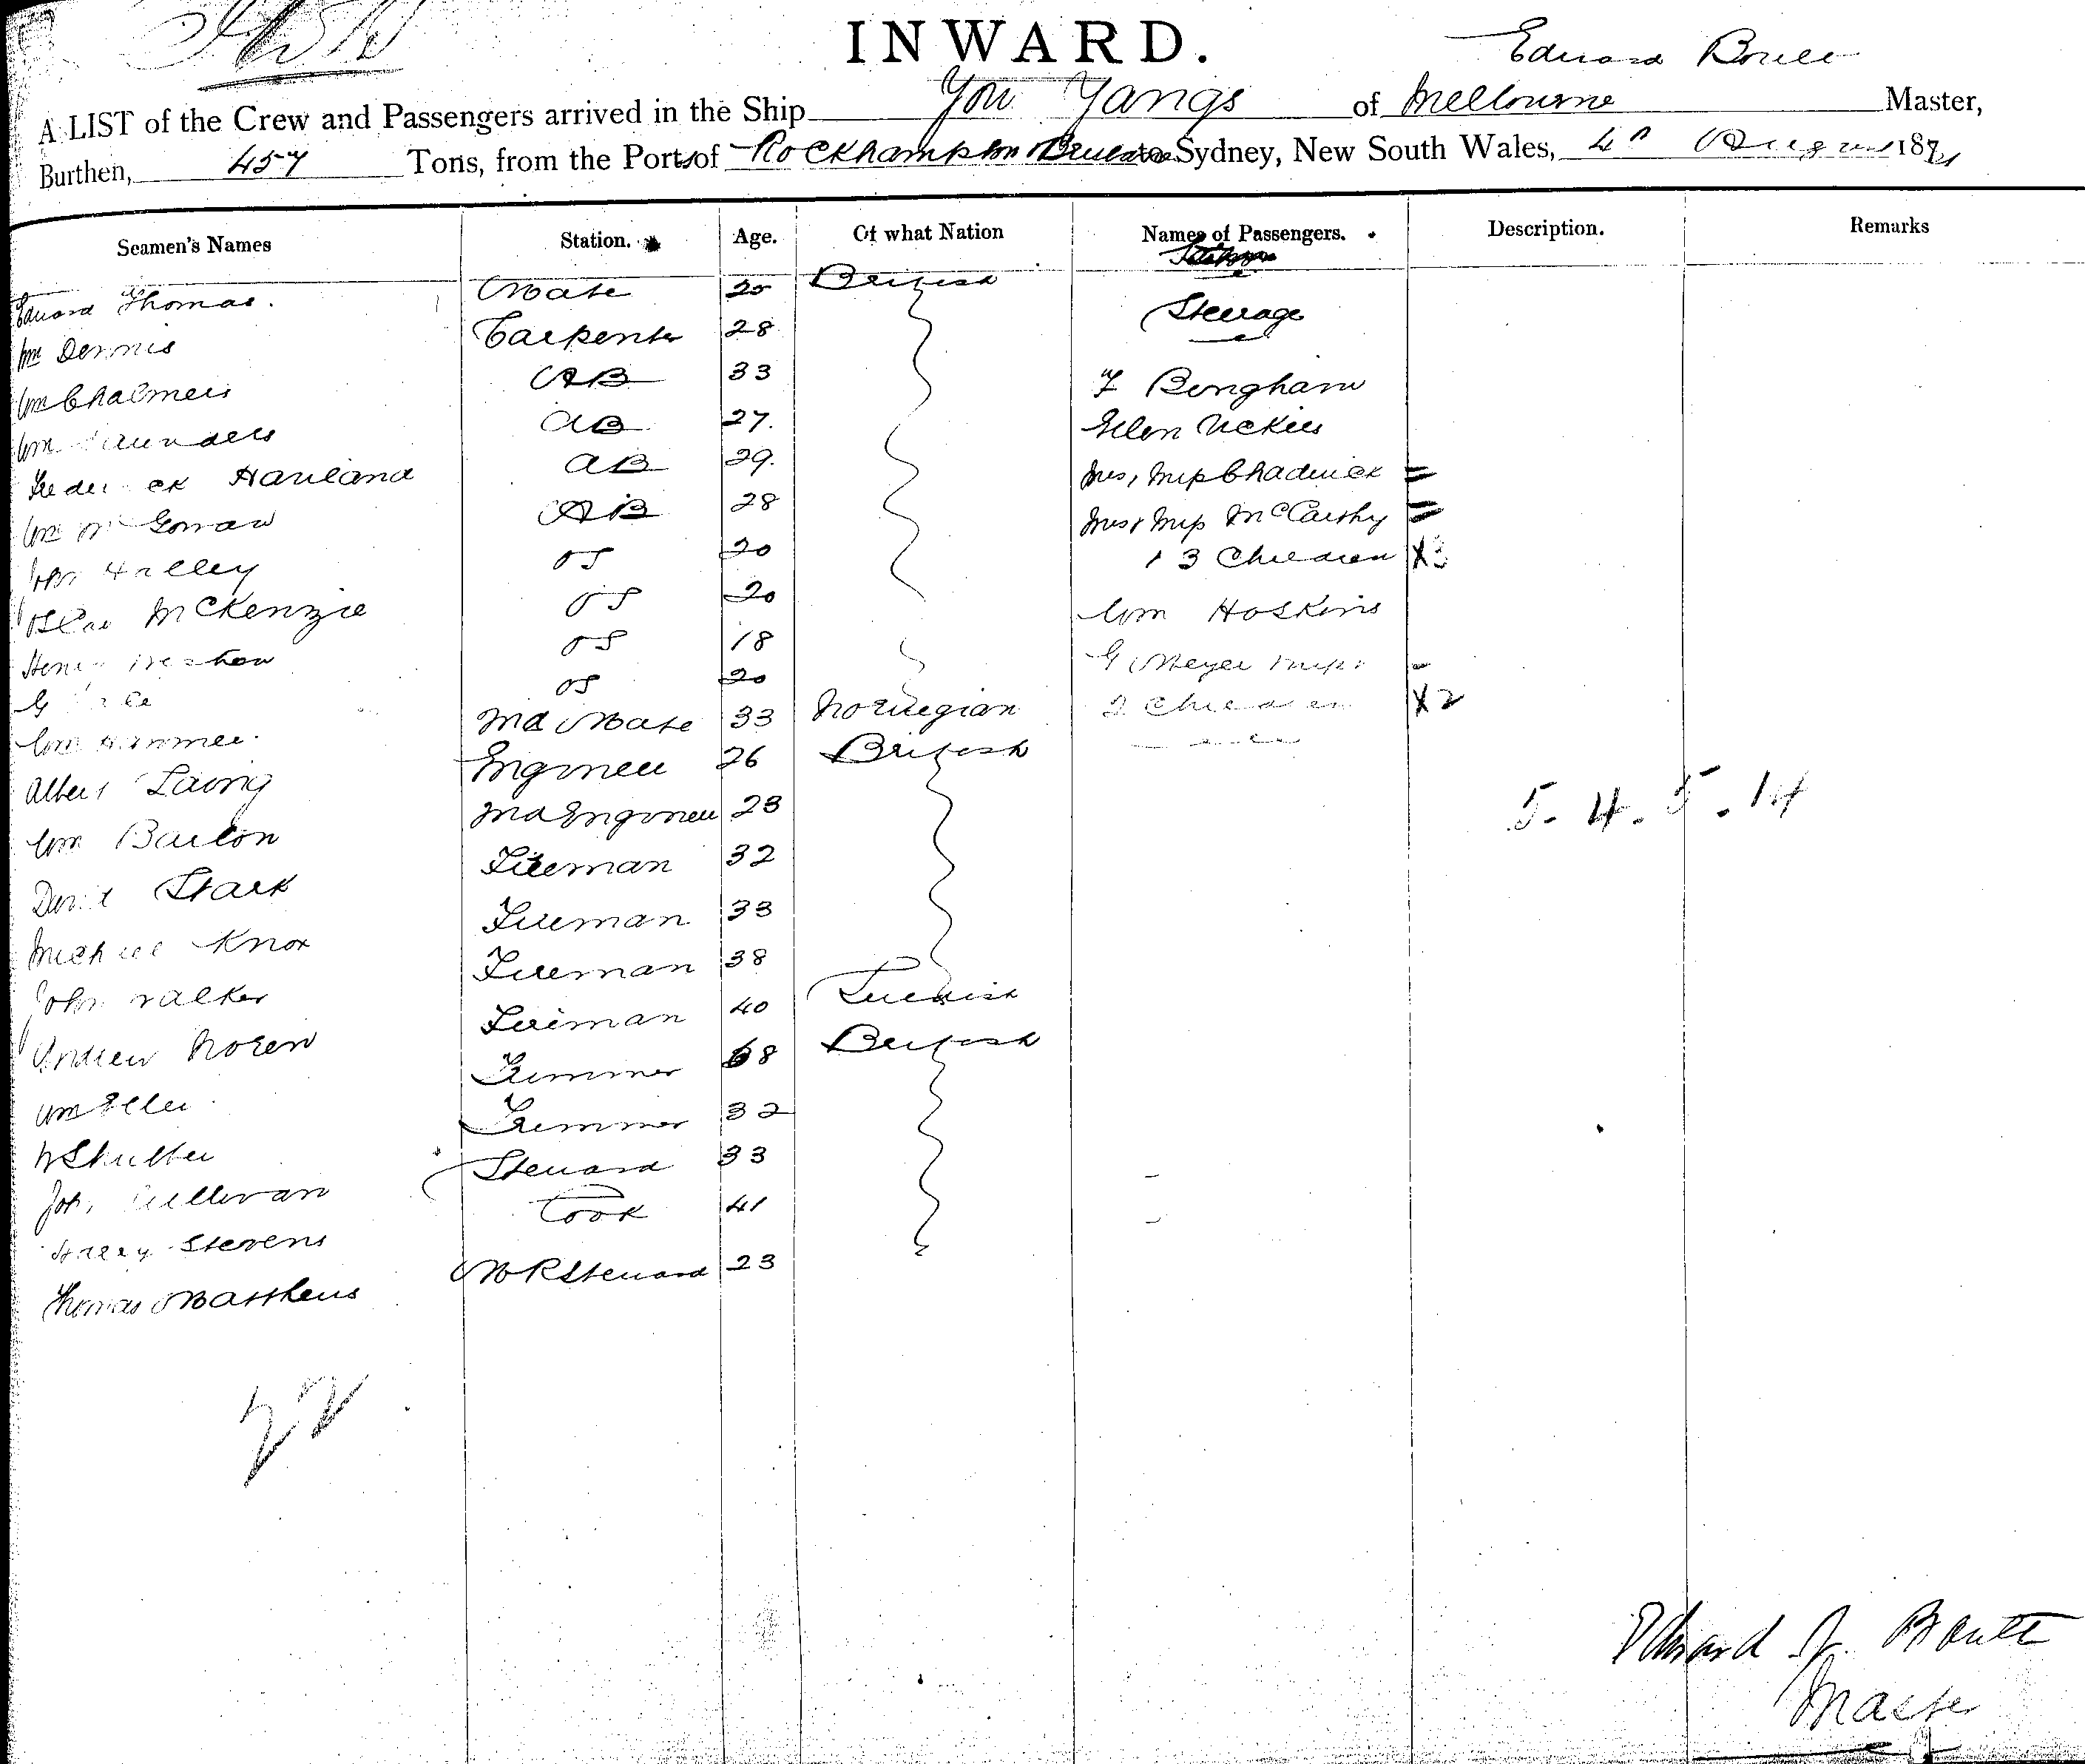 INWARD.
Edward
A LIST of the Crew and Passengers arrived in the Ship You Yangs of Melbourne Master,
Burthen, 457 Tons, from the Ports of Rockhampton to Sydney, New South Wales, 4th August 187
Seamen's Names Station. Age. Of what Nation Names of Passengers. Description. Remarks
Edward Thomas. Mate 25 British
Steerage
Wm Dennis Carpenter 28
Wm Chalmers AB 33 Bingham
Wm Saunders AB 27. Ellen Vickers
Frederick Harland AB 29. Mrs, Miss Chadwick =
Wm McGowan AB 28 Mrs & Miss McCarthy =
John Halley OS 20 3 Children X3
McKenzie OS 20 Wm Hoskins
Henry OS 18 G Meyer
G OS 20 2 Children X2
Wm 2nd Mate 33 Norwegian
Albert Laing Engineer 26 British
Wm Barton 2nd Engineer 23
5. 4. 5. 14
David Stark Fireman 32
Michael Knox Fireman 33
John Walker Fireman 38
Andrew Noren Fireman 40 Swedish
Wm Trimmer 68 British
Trimmer 32
Sullivan Steward 33
Harry Stevens Cook 41
Thomas Matthews MR Steward 23
22
Edward J.
Master